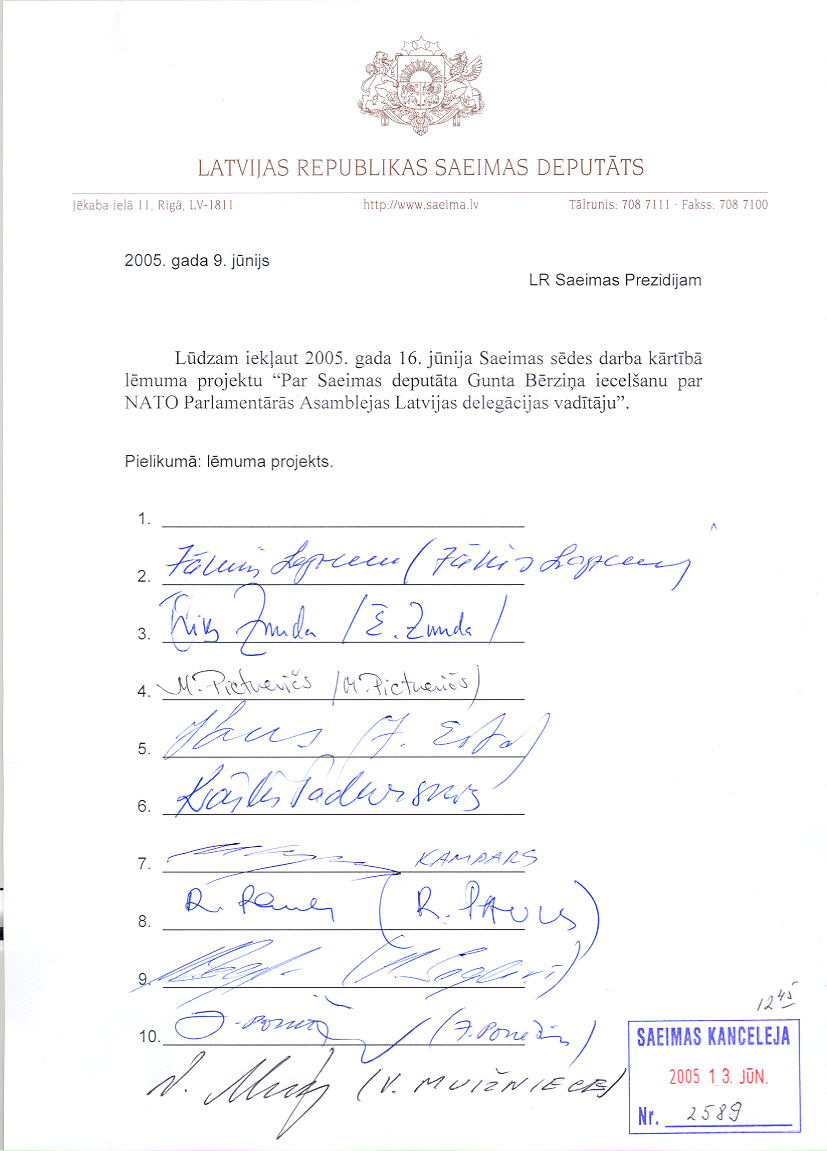 LATVIJAS REPUBLIKAS SAEIMAS DEPUTĀTS
Jēkaba ielā 11, Rīgā, LV-1811 http://www.saeima.lv Tālrunis: 708 7111 · Fakss: 708 7100
2005. gada 9. jūnijs
LR Saeimas Prezidijam
Lūdzam iekļaut 2005. gada 16. jūnija Saeimas sēdes darba kārtībā
lēmuma projektu “Par Saeimas deputāta Gunta Bērziņa iecelšanu par
NATO Parlamentārās Asamblejas Latvijas delegācijas vadītāju”.
Pielikumā: lēmuma projekts.
1.
2. Jānis (Jānis
3. Zunda (E. Zunda)
4. M. Pietkevičs (M. Pietkevičs)
5. (J.
6.
7. KAMPARS
8. R. (R. PAULS)
9.
10. (J.
V. (V. MUIŽNIECE)
12 45
SAEIMAS KANCELEJA
2005 13. JŪN.
Nr. 2589